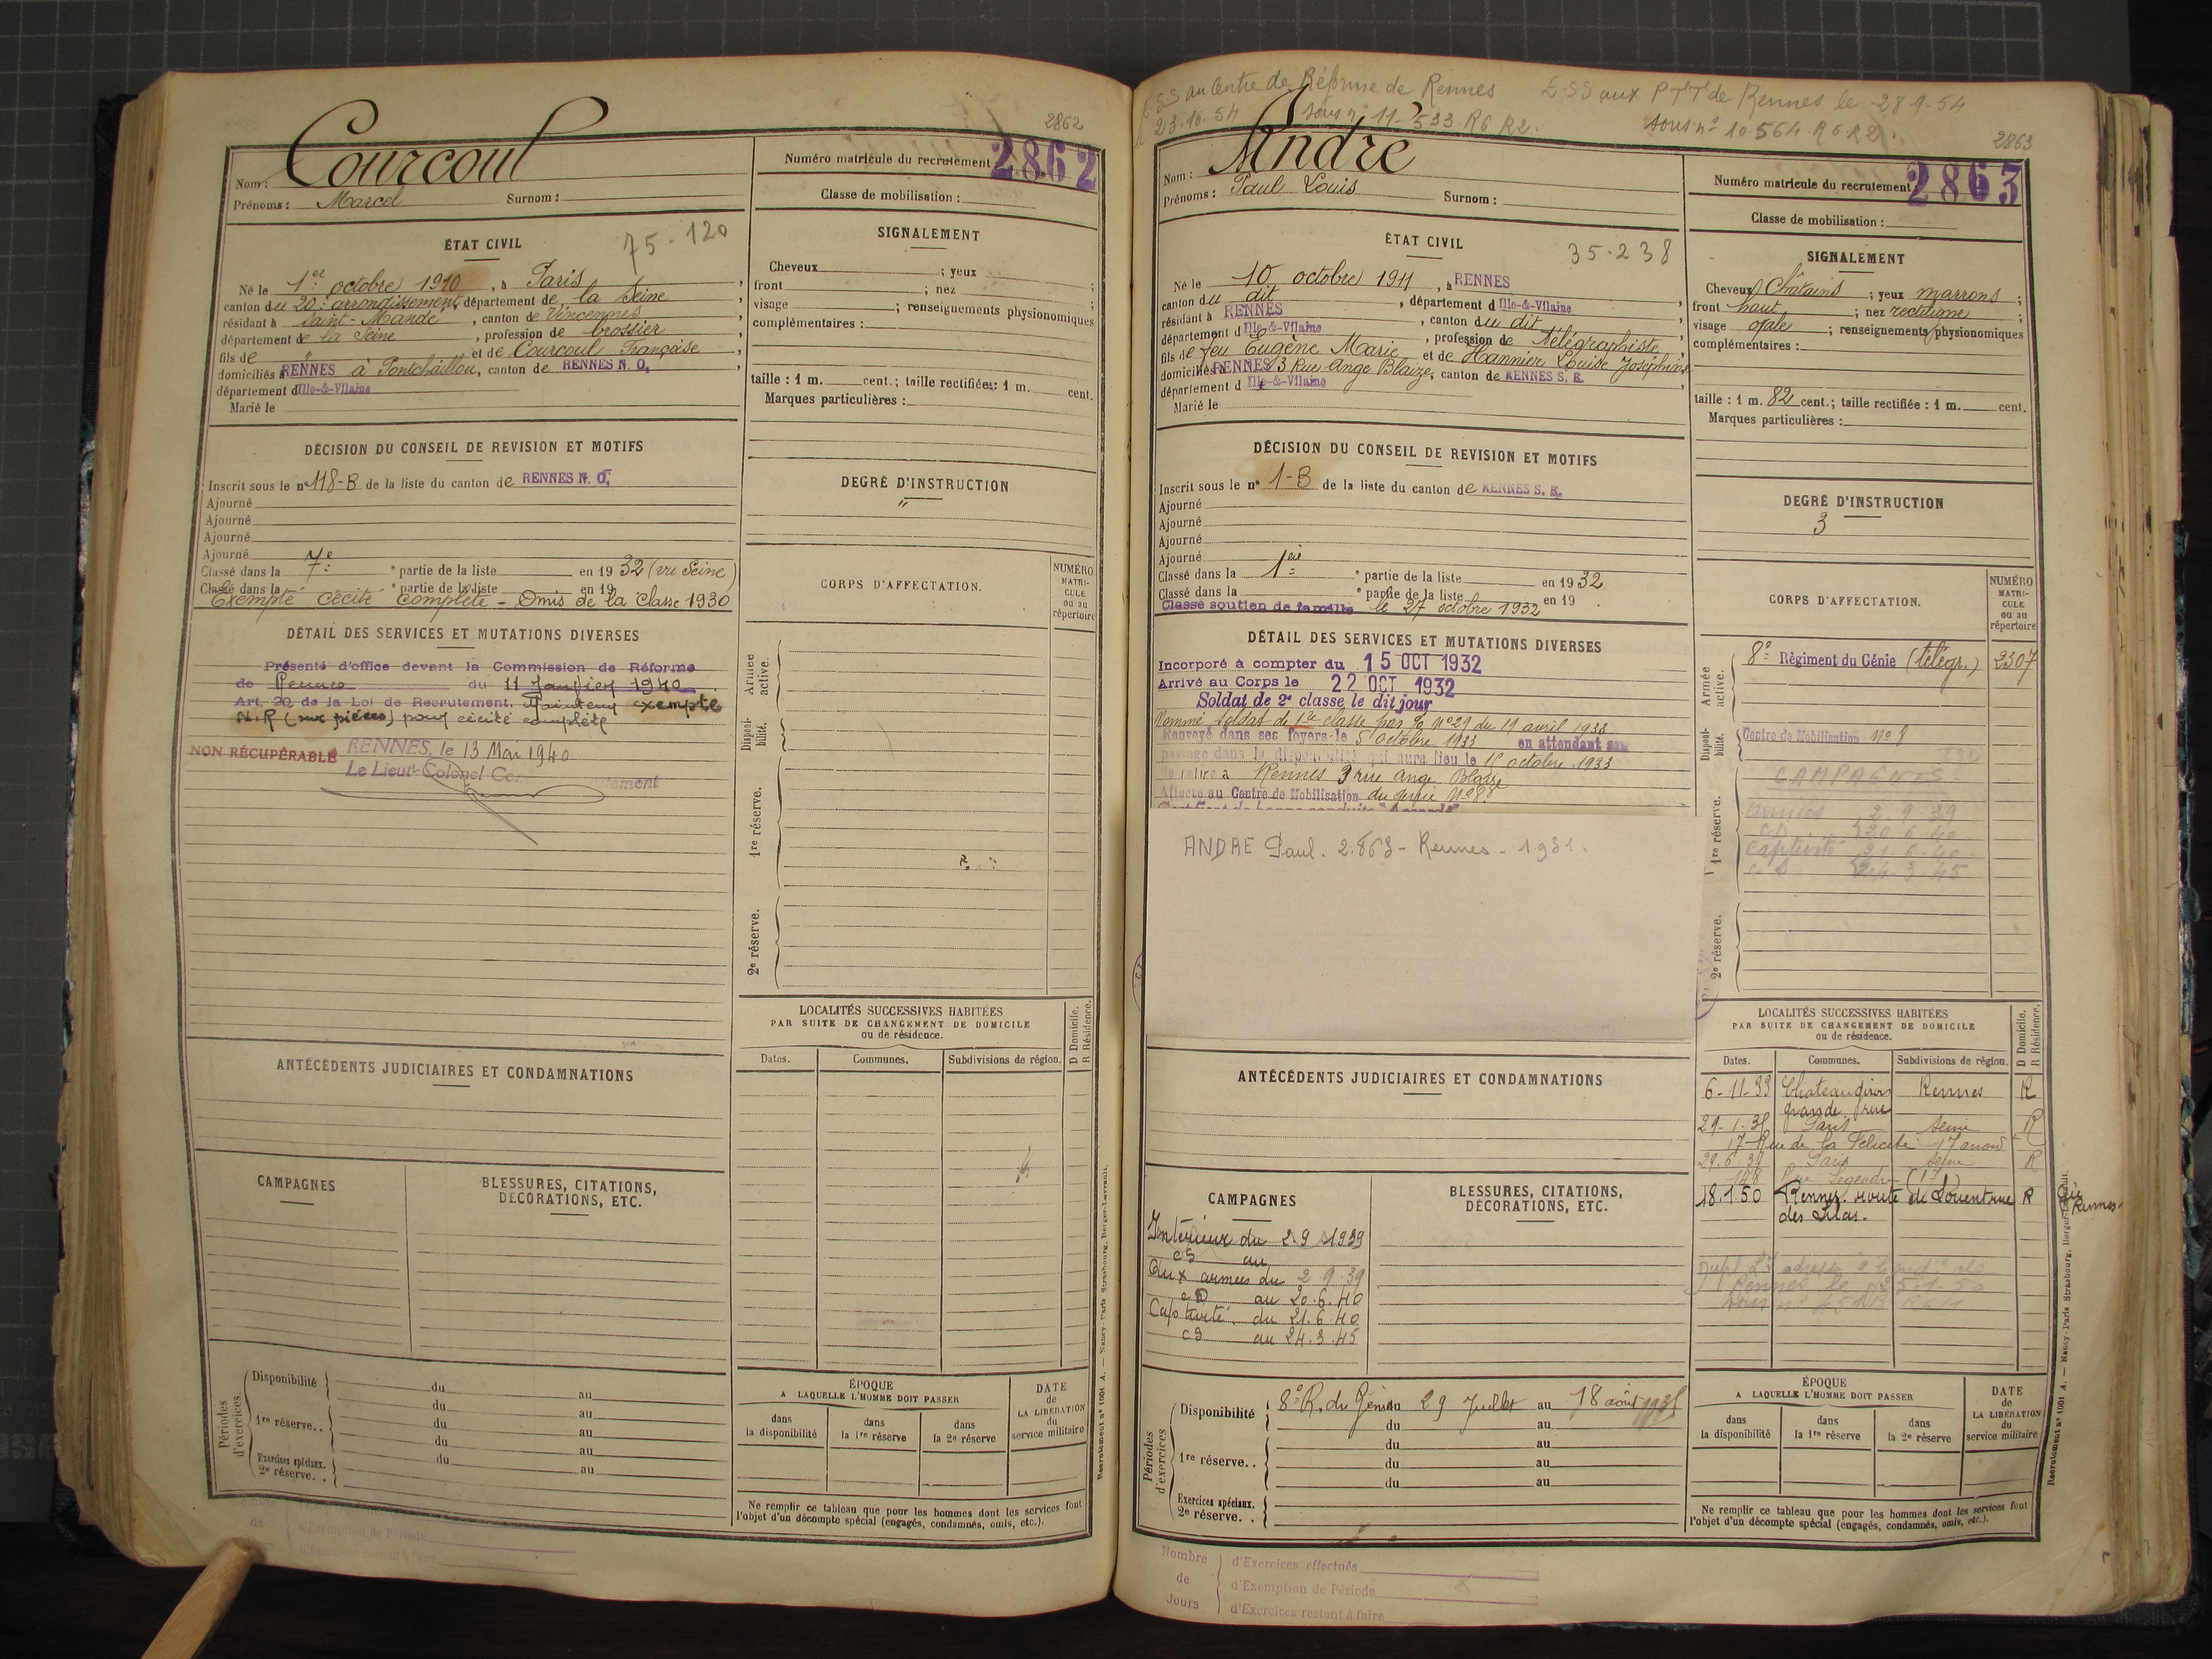 2862
Nom : Courcoul
Prénoms : Marcel Surnom :
Numéro matricule du recrutement 2862
Classe de mobilisation :
ÉTAT CIVIL
75-120
Né le 1er octobre 1910, à Paris,
canton du 20e arrondissement, département de la Seine
résidant à Saint-Mandé, canton de Vincennes
département de la Seine, profession de brossier
fils de " et de Courcoul Françoise,
domiciliés à RENNES à Pontchaillou, canton de RENNES N. O.
département d'Ille-&-Vilaine
Marié le
SIGNALEMENT
Cheveux ; yeux
front ; nez ;
visage ; renseignements physionomiques
complémentaires :
taille : 1 m. cent.; taille rectifiée : 1 m. cent.
Marques particulières :
DÉCISION DU CONSEIL DE REVISION ET MOTIFS
Inscrit sous le n° 118-B de la liste du canton de RENNES N. O.
Ajourné
Ajourné
Ajourné
Ajourné
Classé dans la 7e partie de la liste en 1932 (vu Seine)
Classé dans la ° partie de la liste en 19
Exempté cécité complète - Omis de la classe 1930
DEGRÉ D'INSTRUCTION
"
DÉTAIL DES SERVICES ET MUTATIONS DIVERSES
Présenté d'office devant la Commission de Réforme
de Rennes du 11 Janvier 1940
Art. 20 de la Loi de Recrutement. Maintenu exempté
N.R (sur pièces) pour cécité complète
NON RÉCUPÉRABLE RENNES, le 13 Mar 1940
Le Lieut-Colonel
CORPS D'AFFECTATION.
NUMÉRO MATRI-CULE ou au répertoire
Armée active.
Disponi-bilité.
1re réserve.
2e réserve.
LOCALITÉS SUCCESSIVES HABITÉES
PAR SUITE DE CHANGEMENT DE DOMICILE
ou de résidence.
Dates. Communes. Subdivisions de région. D Domicile. R Résidence.
ANTÉCÉDENTS JUDICIAIRES ET CONDAMNATIONS
CAMPAGNES
BLESSURES, CITATIONS,
DÉCORATIONS, ETC.
Périodes d'exercices
Disponibilité du au
du au
1re réserve.. du au
du au
Exercices spéciaux. du au
2e réserve. .
ÉPOQUE
A LAQUELLE L'HOMME DOIT PASSER
dans la disponibilité
dans la 1re réserve
dans la 2e réserve
DATE de LA LIBÉRATION du service militaire
Ne remplir ce tableau que pour les hommes dont les services font
l'objet d'un décompte spécial (engagés, condamnés, omis, etc.).
Recrutement n° 1001 A. — Nancy-Paris Strasbourg, Berger-Levrault.
de
d'Exemption de Période
d'Exercices restant à faire
E.SS au Centre de Réforme de Rennes
23-10-54 sous n° 11-533 R6 R2.
E.SS aux PTT de Rennes le 28-9-54
sous n° 10-564 R6 R2.
2863
Nom : André
Prénoms : Paul Louis Surnom :
Numéro matricule du recrutement 2863
Classe de mobilisation :
ÉTAT CIVIL
35-238
Né le 10 octobre 1911, à RENNES
canton du dit, département d'Ille-&-Vilaine,
résidant à RENNES, canton du dit,
département d'Ille-&-Vilaine, profession de télégraphiste,
fils de feu Eugène Marie et de Hannier Louise Joséphine
domiciliés à RENNES 3 Rue Ange Blaize, canton de RENNES S. E.
département d'Ille-&-Vilaine
Marié le
SIGNALEMENT
Cheveux Chatains ; yeux marrons ;
front haut ; nez rectiligne ;
visage ovale ; renseignements physionomiques
complémentaires :
taille : 1 m. 82 cent.; taille rectifiée : 1 m. cent.
Marques particulières :
DÉCISION DU CONSEIL DE REVISION ET MOTIFS
Inscrit sous le n° 1-B de la liste du canton de RENNES S. E.
Ajourné
Ajourné
Ajourné
Ajourné
Classé dans la 1ère partie de la liste en 1932
Classé dans la ° partie de la liste en 19 .
Classé soutien de famille le 27 octobre 1932
DEGRÉ D'INSTRUCTION
3
DÉTAIL DES SERVICES ET MUTATIONS DIVERSES
Incorporé à compter du 15 OCT 1932
Arrivé au Corps le 22 OCT 1932
Soldat de 2e classe le dit jour
Nommé soldat de 1re classe n° 29 du 19 avril 1933
Renvoyé dans ses foyers le 5 octobre 1933 en attendant son
passage dans la disponibilité qui aura lieu le 15 octobre 1933
Se retire à Rennes 3 rue Ange Blaize
Affecté au Centre de Mobilisation du génie n° 8
ANDRE Paul. 2.863 - Rennes - 1931.
CORPS D'AFFECTATION.
NUMÉRO MATRI-CULE ou au répertoire
Armée active. 8e Régiment du Génie (télégr.) 2307
Disponi-bilité. Centre de Mobilisation N° 8
CAMPAGNES
1re réserve. armées 2.9.39
20-6-40
Captivité 21-6-40
24-3-45
2e réserve.
LOCALITÉS SUCCESSIVES HABITÉES
PAR SUITE DE CHANGEMENT DE DOMICILE
ou de résidence.
Dates. Communes. Subdivisions de région. D Domicile. R Résidence.
6-11-33 Chateaugiron Rennes R
grande rue
29-1-35 Paris Seine R
17 Rue de la Félicité 17 arrond
29.6.37 Paris Seine R
148 Rue Legendre (17)
18.1.50 Rennes route de Lorient rue R
des Lilas. Rennes
ANTÉCÉDENTS JUDICIAIRES ET CONDAMNATIONS
CAMPAGNES
Intérieur du 2.9.1939
au
Aux armées du 2.9.39
au 20.6.40
Captivité du 21.6.40
au 24.3.45
BLESSURES, CITATIONS,
DÉCORATIONS, ETC.
Périodes d'exercices
Disponibilité 8e R. du Génie du 29 Juillet au 18 août 1935
du au
1re réserve.. du au
du au
du au
Exercices spéciaux.
2e réserve. .
ÉPOQUE
A LAQUELLE L'HOMME DOIT PASSER
dans la disponibilité
dans la 1re réserve
dans la 2e réserve
DATE de LA LIBÉRATION du service militaire
Ne remplir ce tableau que pour les hommes dont les services font
l'objet d'un décompte spécial (engagés, condamnés, omis, etc.).
Recrutement n° 1001 A. — Nancy-Paris Strasbourg, Berger-Levrault.
Nombre de Jours
d'Exercices effectués
d'Exemption de Période
d'Exercices restant à faire